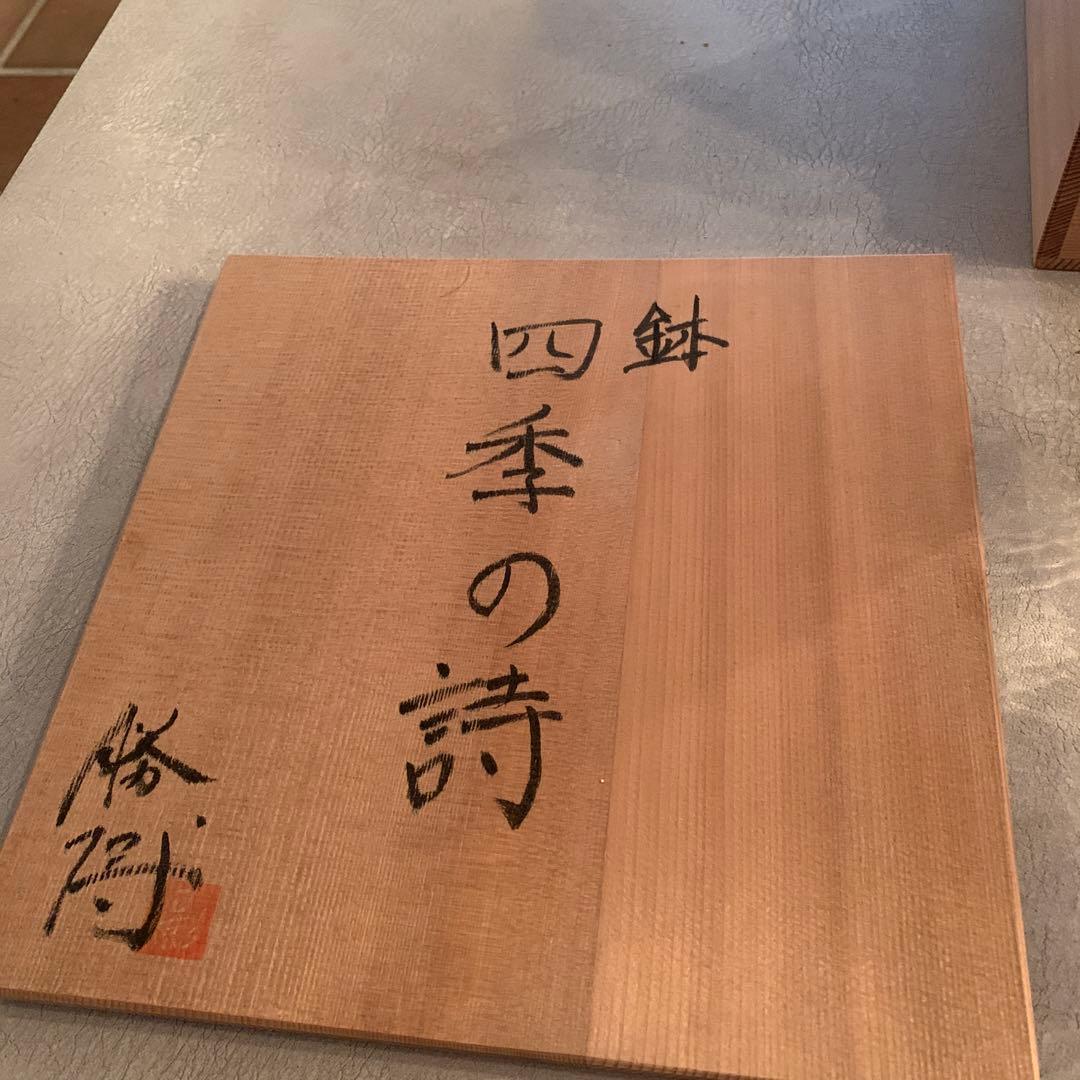 鉢
四季の詩
勝